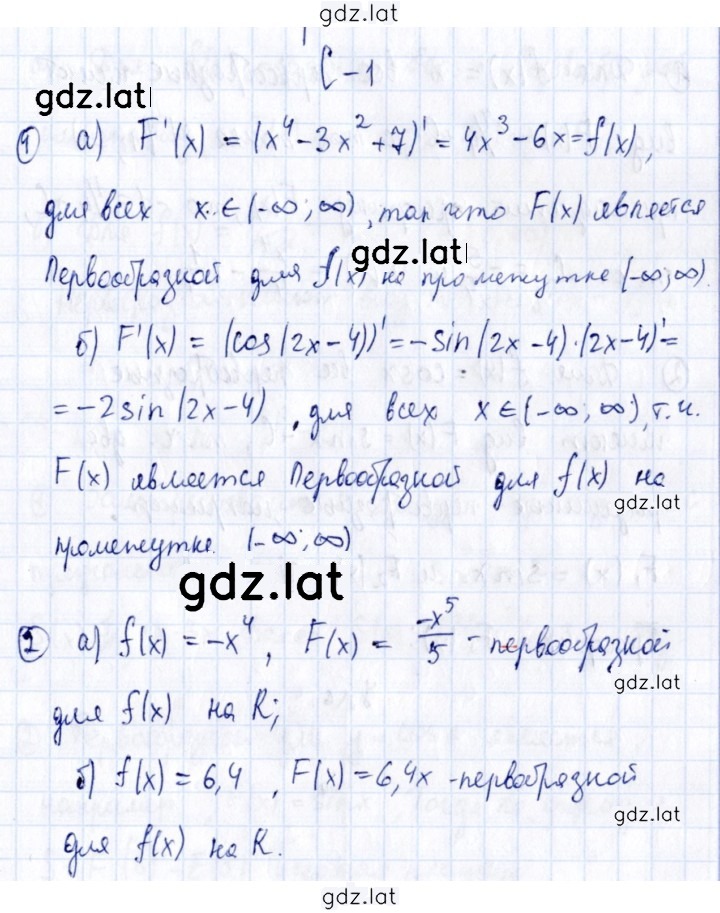 gdz.lat
С-1
gdz.lat
① а) F'(x) = (x⁴-3x²+7)' = 4x³-6x=f(x),
для всех x ∈ (-∞; ∞), так что F(x) является
gdz.lat
Первообразной для f(x) на промежутке (-∞;∞).
б) F'(x) = (cos(2x-4))' = -sin(2x-4)·(2x-4)'=
= -2sin(2x-4), для всех x∈(-∞; ∞), т.и.
F(x) является Первообразной для f(x) на
gdz.lat
промежутке (-∞; ∞)
gdz.lat
② а) f(x) = -x⁴, F(x) = -x⁵/5 - первообразной
gdz.lat
для f(x) на R;
б) f(x) = 6,4, F(x)=6,4x - первобразной
gdz.lat
для f(x) на R.
gdz.lat